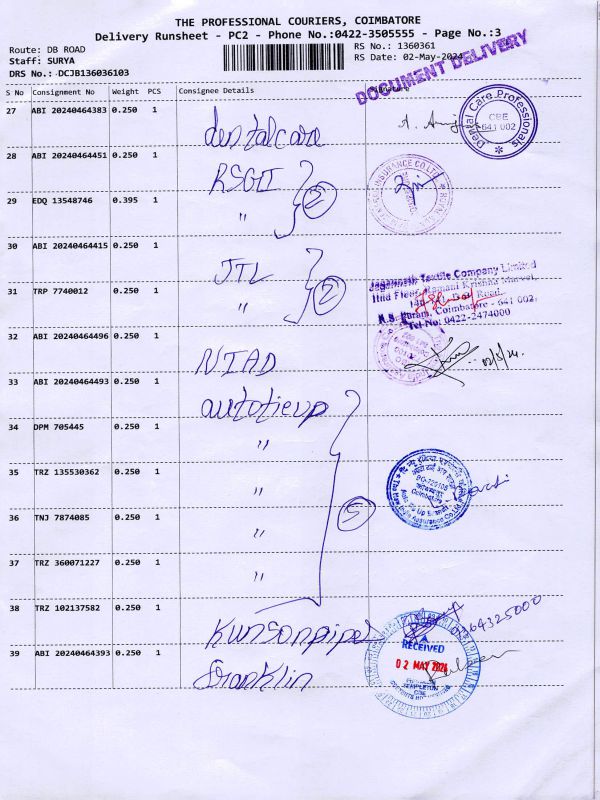 THE PROFESSIONAL COURIERS, COIMBATORE
Delivery Runsheet - PC2 - Phone No.:0422-3505555 - Page No.:3
Route: DB ROAD
RS No.: 1360361
Staff: SURYA
RS Date: 02-May-2024
DRS No.: DCJB136036103
DOCUMENT DELIVERY
S No Consignment No Weight PCS Consignee Details Signature
27 ABI 20240464383 0.250 1 dentalcare
Dental Care Professionals
CBE
641 002
28 ABI 20240464451 0.250 1 RSGI
INSURANCE CO LTD
29 EDQ 13548746 0.395 1 " 2
30 ABI 20240464415 0.250 1 JTL
Jagannath Textile Company Limited
IInd Floor, Ramani Krishna
31 TRP 7740012 0.250 1 " 2
Road,
Coimbatore - 641 002.
Tel No: 0422-2474000
32 ABI 20240464496 0.250 1 NIAD
02/5/24.
33 ABI 20240464493 0.250 1 autotieup
34 DPM 705445 0.250 1 "
35 TRZ 135530362 0.250 1 "
Coimbatore
36 TNJ 7874085 0.250 1 " 5
37 TRZ 360071227 0.250 1 "
38 TRZ 102137582 0.250 1 Kunsonpipes
RECEIVED
02 MAY 2024
39 ABI 20240464393 0.250 1 Franklin
TEMPLETON
CBE